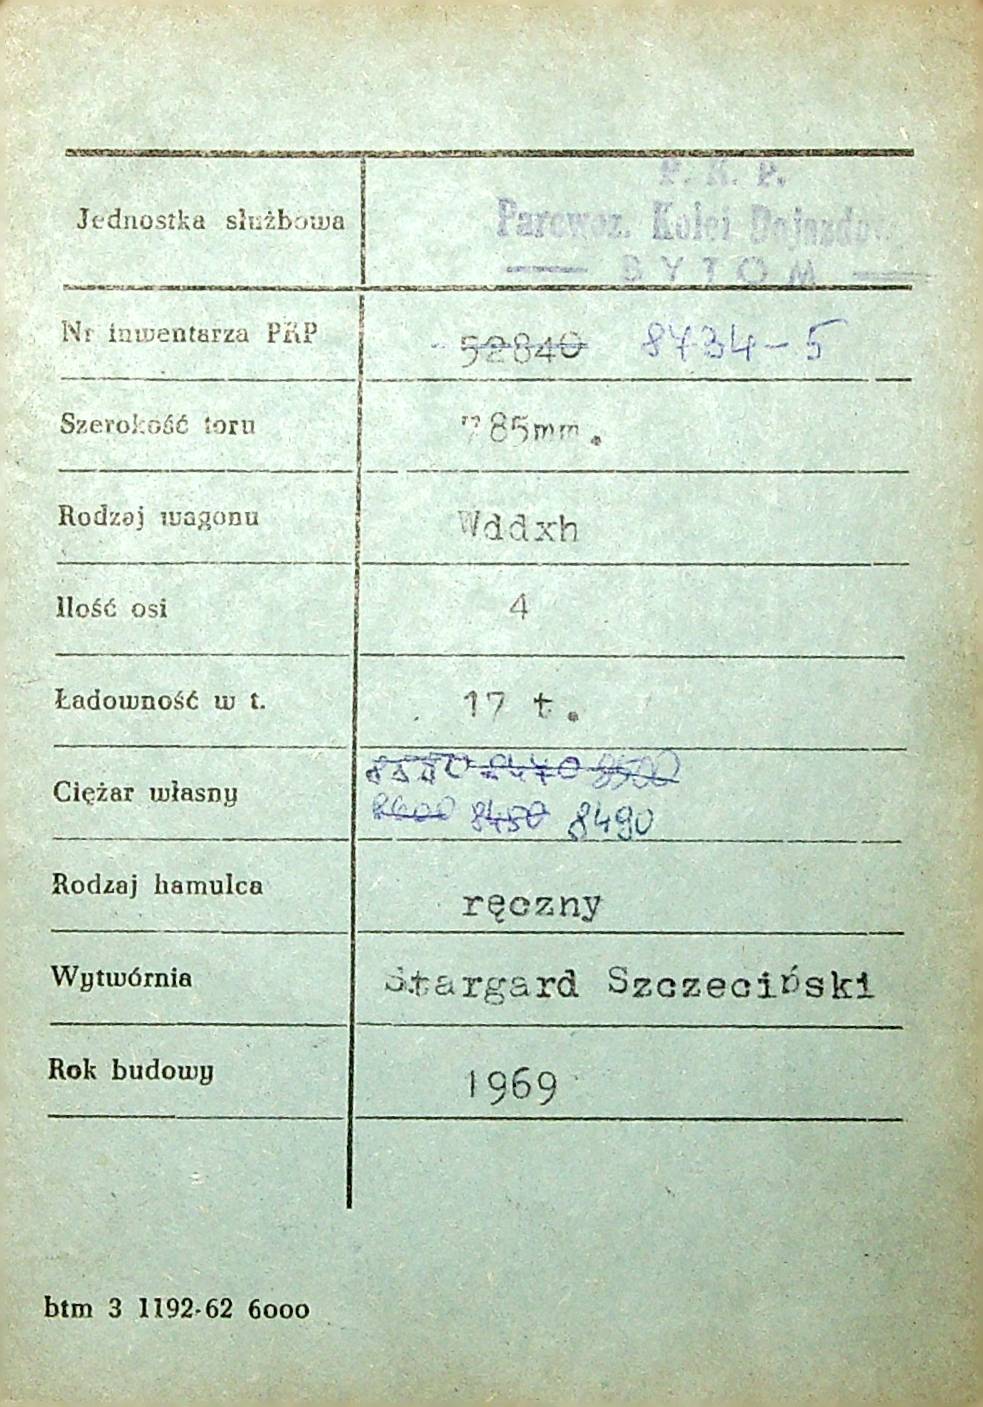 P. K. P.
Jednostka służbowa Parowoz. Kolei Dojazdow.
BYTOM
Nr inwentarza PKP 52840 8734-5
Szerokość toru 785mm.
Rodzaj wagonu Wddxh
Ilość osi 4
Ładowność w t. 17 t.
8470 8500
Ciężar własny 8600 8450 8490
Rodzaj hamulca ręczny
Wytwórnia Stargard Szczeciński
Rok budowy 1969
btm 3 1192-62 6000